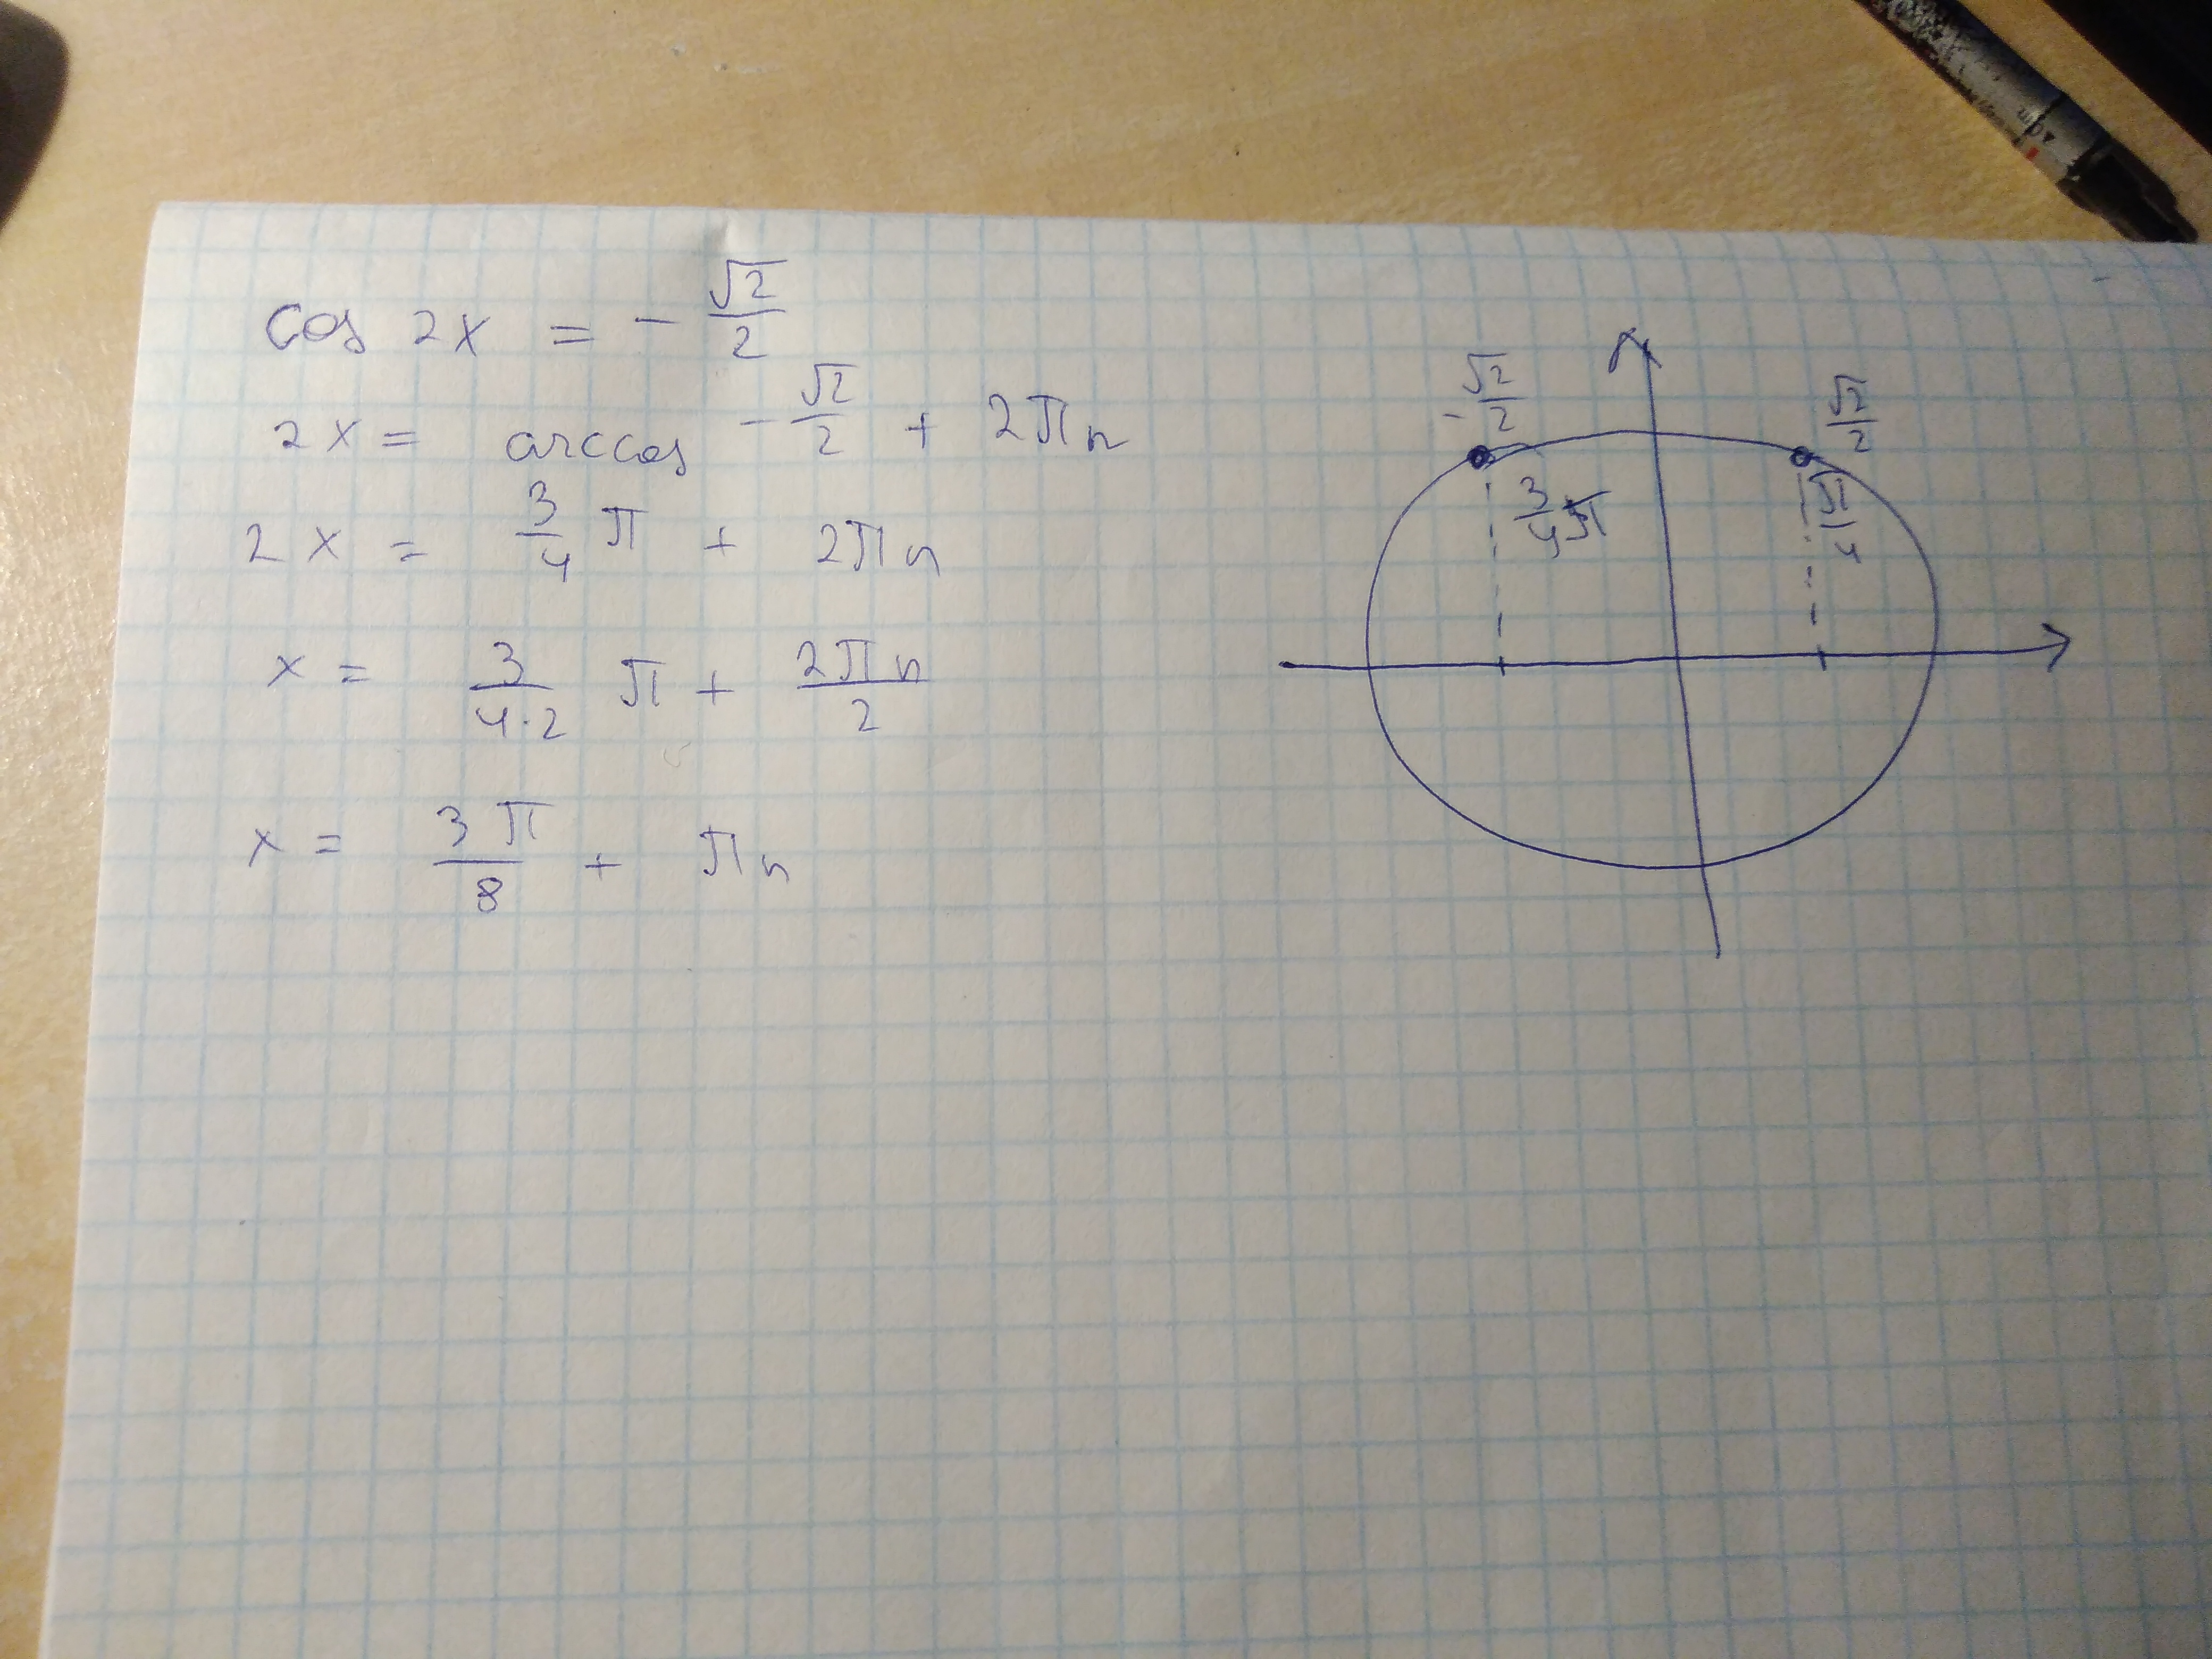 cos 2x = - √2/2
2x = arccos -√2/2 + 2πn
2x = 3/4 π + 2πn
x = 3/(4·2) π + 2πn/2
x = 3π/8 + πn
-√2/2
√2/2
3/4 π
π/4